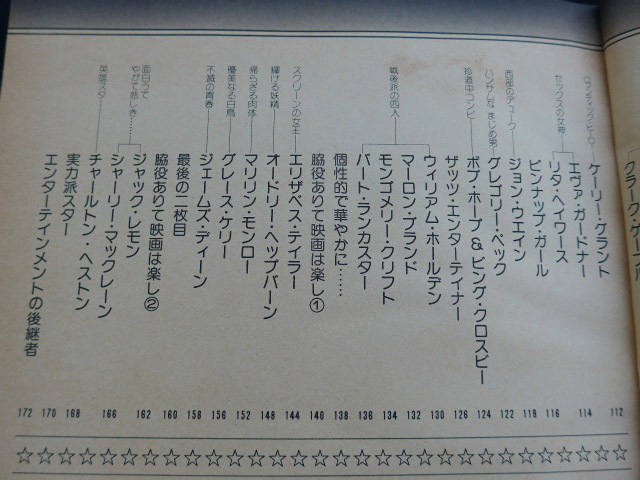 クラーク・ゲーブル
ロマンティック・ヒーロー
ケーリー・グラント 112
エヴァ・ガードナー 114
セックスの女神
リタ・ヘイワース 116
ピンナップ・ガール 118
西部のデューク
ジョン・ウエイン 122
ハンサムなまじめ男
グレゴリー・ペック 124
珍道中コンビ
ボブ・ホープ & ビング・クロスビー 124
ザッツ・エンターテイナー 126
戦後派の四人
ウィリアム・ホールデン 130
マーロン・ブランド 132
モンゴメリー・クリフト 134
バート・ランカスター 136
個性的で華やかに…… 138
脇役ありて映画は楽し① 140
スクリーンの女王
エリザベス・テイラー 144
輝ける妖精
オードリー・ヘップバーン 148
帰らざる肉体
マリリン・モンロー 152
優美なる白鳥
グレース・ケリー 156
不滅の青春
ジェームズ・ディーン 158
最後の二枚目 160
脇役ありて映画は楽し② 162
面白うてやがて悲しき……
ジャック・レモン
シャーリー・マックレーン 166
英雄スター
チャールトン・ヘストン 168
実力派スター 170
エンターティンメントの後継者 172
☆☆☆☆☆☆☆☆☆☆☆☆☆☆☆☆☆☆☆☆☆☆☆☆☆☆☆